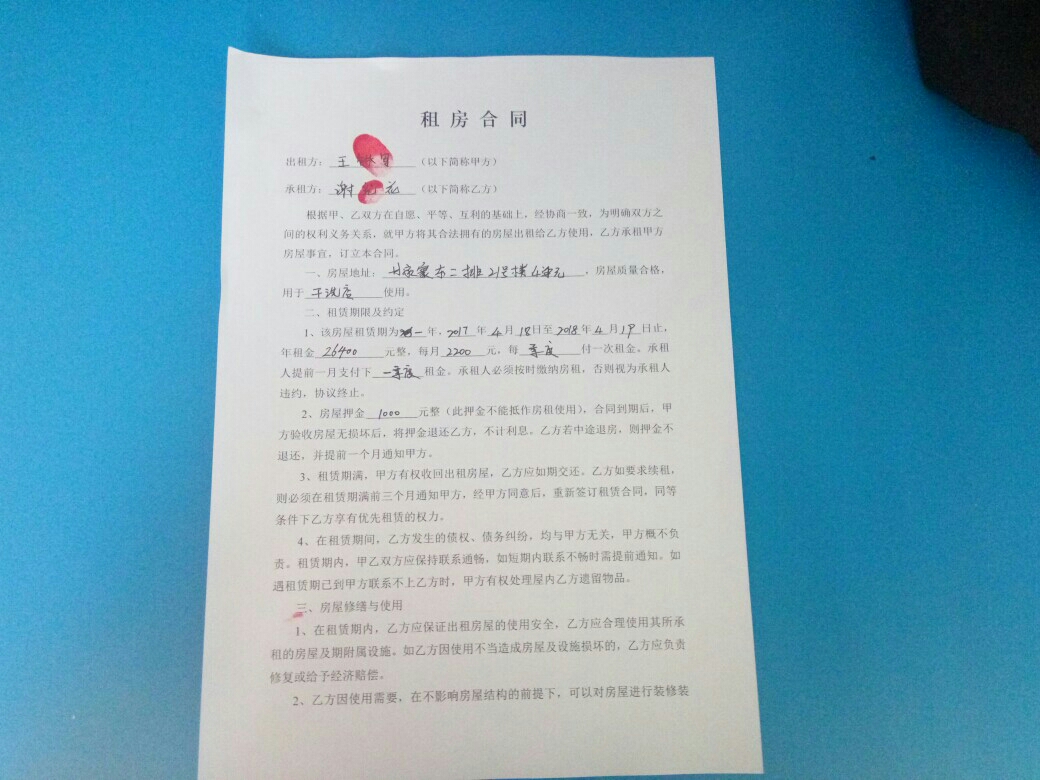 租房合同
出租方：王（以下简称甲方）
承租方：谢 花（以下简称乙方）
根据甲、乙双方在自愿、平等、互利的基础上，经协商一致，为明确双方之
间的权利义务关系，就甲方将其合法拥有的房屋出租给乙方使用，乙方承租甲方
房屋事宜，订立本合同。
一、房屋地址：东二排21号楼4单元，房屋质量合格，
用于干洗店使用。
二、租赁期限及约定
1、该房屋租赁期为一年，2017年4月18日至2018年4月19日止，
年租金26400元整，每月2200元，每季度付一次租金。承租
人提前一月支付下一季度租金。承租人必须按时缴纳房租，否则视为承租人
违约，协议终止。
2、房屋押金1000元整（此押金不能抵作房租使用），合同到期后，甲
方验收房屋无损坏后，将押金退还乙方，不计利息。乙方若中途退房，则押金不
退还，并提前一个月通知甲方。
3、租赁期满，甲方有权收回出租房屋，乙方应如期交还。乙方如要求续租，
则必须在租赁期满前三个月通知甲方，经甲方同意后，重新签订租赁合同，同等
条件下乙方享有优先租赁的权力。
4、在租赁期间，乙方发生的债权、债务纠纷，均与甲方无关，甲方概不负
责。租赁期内，甲乙双方应保持联系通畅，如短期内联系不畅时需提前通知。如
遇租赁期已到甲方联系不上乙方时，甲方有权处理屋内乙方遗留物品。
三、房屋修缮与使用
1、在租赁期内，乙方应保证出租房屋的使用安全，乙方应合理使用其所承
租的房屋及期附属设施。如乙方因使用不当造成房屋及设施损坏的，乙方应负责
修复或给予经济赔偿。
2、乙方因使用需要，在不影响房屋结构的前提下，可以对房屋进行装修装